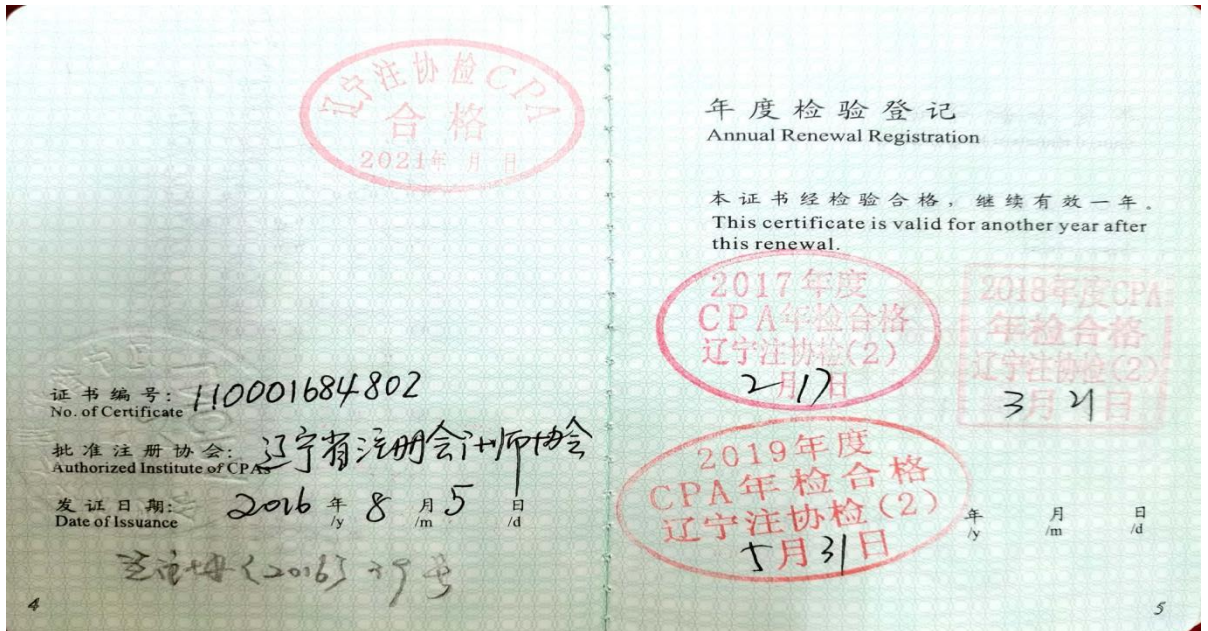 辽宁注协检CPA
合格
2021年 月 日
证书编号: 110001684802
No. of Certificate
批准注册协会: 辽宁省注册会计师协会
Authorized Institute of CPAs
发证日期: 2016 年 8 月 5 日
Date of Issuance /y /m /d
(2016) 39号
4
年度检验登记
Annual Renewal Registration
本证书经检验合格，继续有效一年。
This certificate is valid for another year after
this renewal.
2017年度
CPA年检合格
辽宁注协检(2)
2月17日
2018年度CPA
年检合格
辽宁注协检(2)
3月21日
2019年度
CPA年检合格
辽宁注协检(2)
5月31日
年 月 日
/y /m /d
5